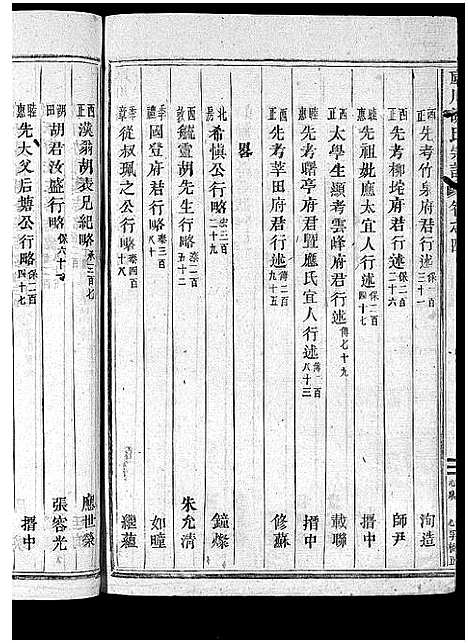 氏宗譜 卷之四
西正 先考竹泉府君行述 保二百三十一 洵造
正 先考柳垞府君行述 保二百三十六 師尹
睦惠 先祖妣應太宜人行述 保二百四十七 搢中
西正 太學生顯考雲峰府君行述 傳七十九 載聯
睦惠 先考曙亭府君暨應氏宜人行述 傳一百八十三 搢中
先考莘田府君行述 傳二百九十五 修蘇
畧
北 希愼公行略 宏三百二十九 鐘燦
西 毓靈胡先生行略 泰二百五十二 朱允清
季禮 國登府君行略 泰三百八十 如曈
季章 從叔珮之公行略 泰四百十八 繼蘊
西正 漢翁胡表兄紀略 承三百七 應世榮
胡田 胡君汝盛行略 保六十一 張容光
睦惠 先大父后塘公行略 保二百四十七 搢中